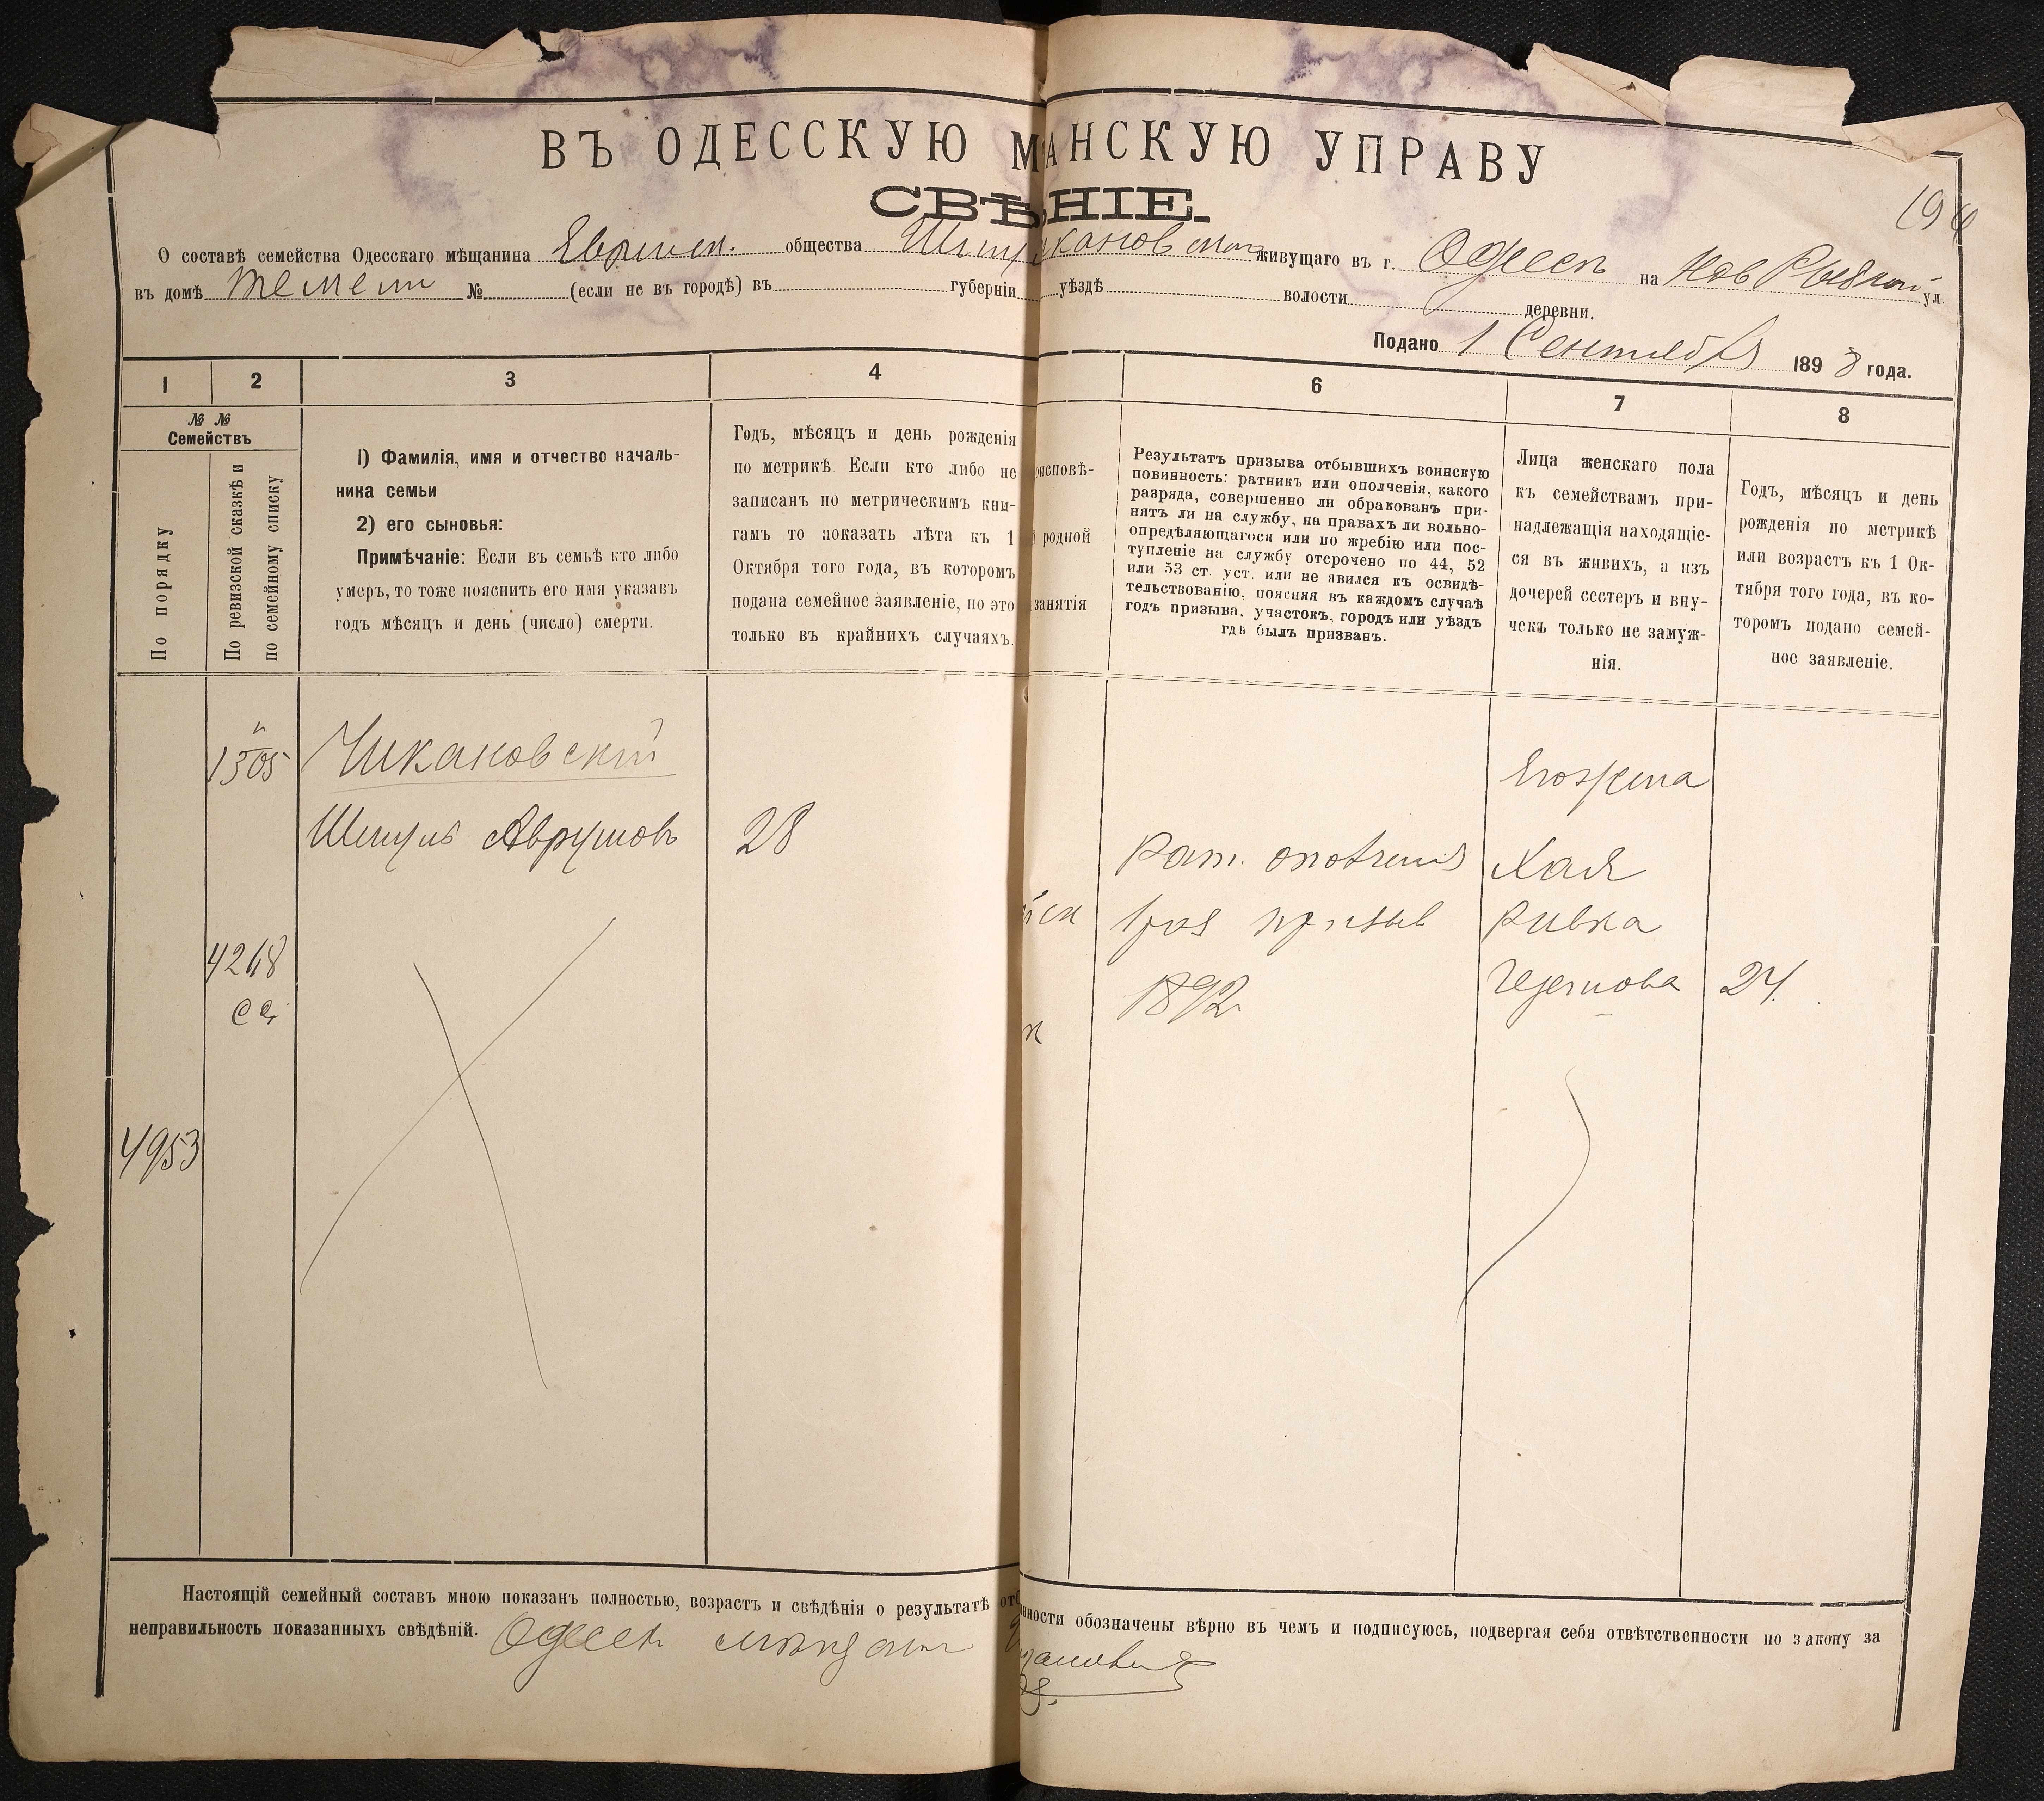 ВЪ ОДЕССКУЮ МАНСКУЮ УПРАВУ
СВѢНІЕ.
194
О составѣ семейства Одесскаго мѣщанина Еврейск. общества живущаго въ г. Одессѣ на Нов Рыбной ул.
въ домѣ № (если не въ городѣ) въ губерніи уѣздѣ волости деревни.
Подано 1 Сентября 1898 года.
1 2 3 4 6 7 8
№ №
Семействъ
По порядку
По ревизской сказкѣ и
по семейному списку
1) Фамилія, имя и отчество началь-
ника семьи
2) его сыновья:
Примѣчаніе: Если въ семьѣ кто либо
умеръ, то тоже пояснить его имя указавъ
годъ мѣсяцъ и день (число) смерти.
Годъ, мѣсяцъ и день рожденія
по метрикѣ Если кто либо не
записанъ по метрическимъ кни-
гамъ то показать лѣта къ 1
Октября того года, въ которомъ
подана семейное заявленіе, но это
только въ крайнихъ случаяхъ.
оисповѣ-
родной
занятія
Результатъ призыва отбывшихъ воинскую
повинность: ратникъ или ополченія, какого
разряда, совершенно ли обракованъ при-
нятъ ли на службу, на правахъ ли вольно-
опредѣляющагося или по жребію или пос-
тупленіе на службу отсрочено по 44, 52
или 53 ст. уст. или не явился къ освидѣ-
тельствованію, поясняя въ каждомъ случаѣ
годъ призыва, участокъ, городъ или уѣздъ
гдѣ былъ призванъ.
Лица женскаго пола
къ семействамъ при-
надлежащія находящіе-
ся въ живихъ, а изъ
дочерей сестеръ и вну-
чекъ только не замуж-
нія.
Годъ, мѣсяцъ и день
рожденія по метрикѣ
или возрастъ къ 1 Ок-
тября того года, въ ко-
торомъ подано семей-
ное заявленіе.
1505 Чикановскій
Его жена
Шмуль Аврумовъ 28
Рат. ополченія Хая
1 раз призыв Ривка
4268
1892 24
4953
Настоящій семейный составъ мною показанъ полностью, возрастъ и свѣдѣнія о результатѣ отб
нности обозначены вѣрно въ чемъ и подписуюсь, подвергая себя отвѣтственности по закону за
неправильность показанныхъ свѣдѣній. Одесск мѣщанин